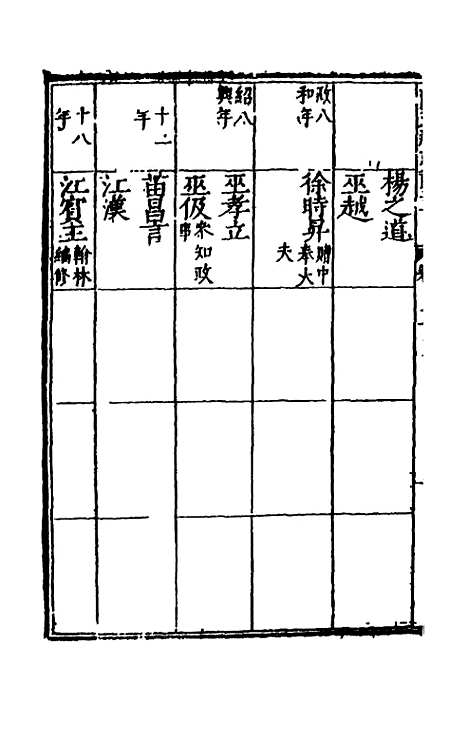 楊之道
巫越
政和八年
徐時昇 贈中奉大夫
紹興八年
巫孝立
巫伋 參知政事
十一年
苗昌言
江漢
十八年
江賓王 翰林編修